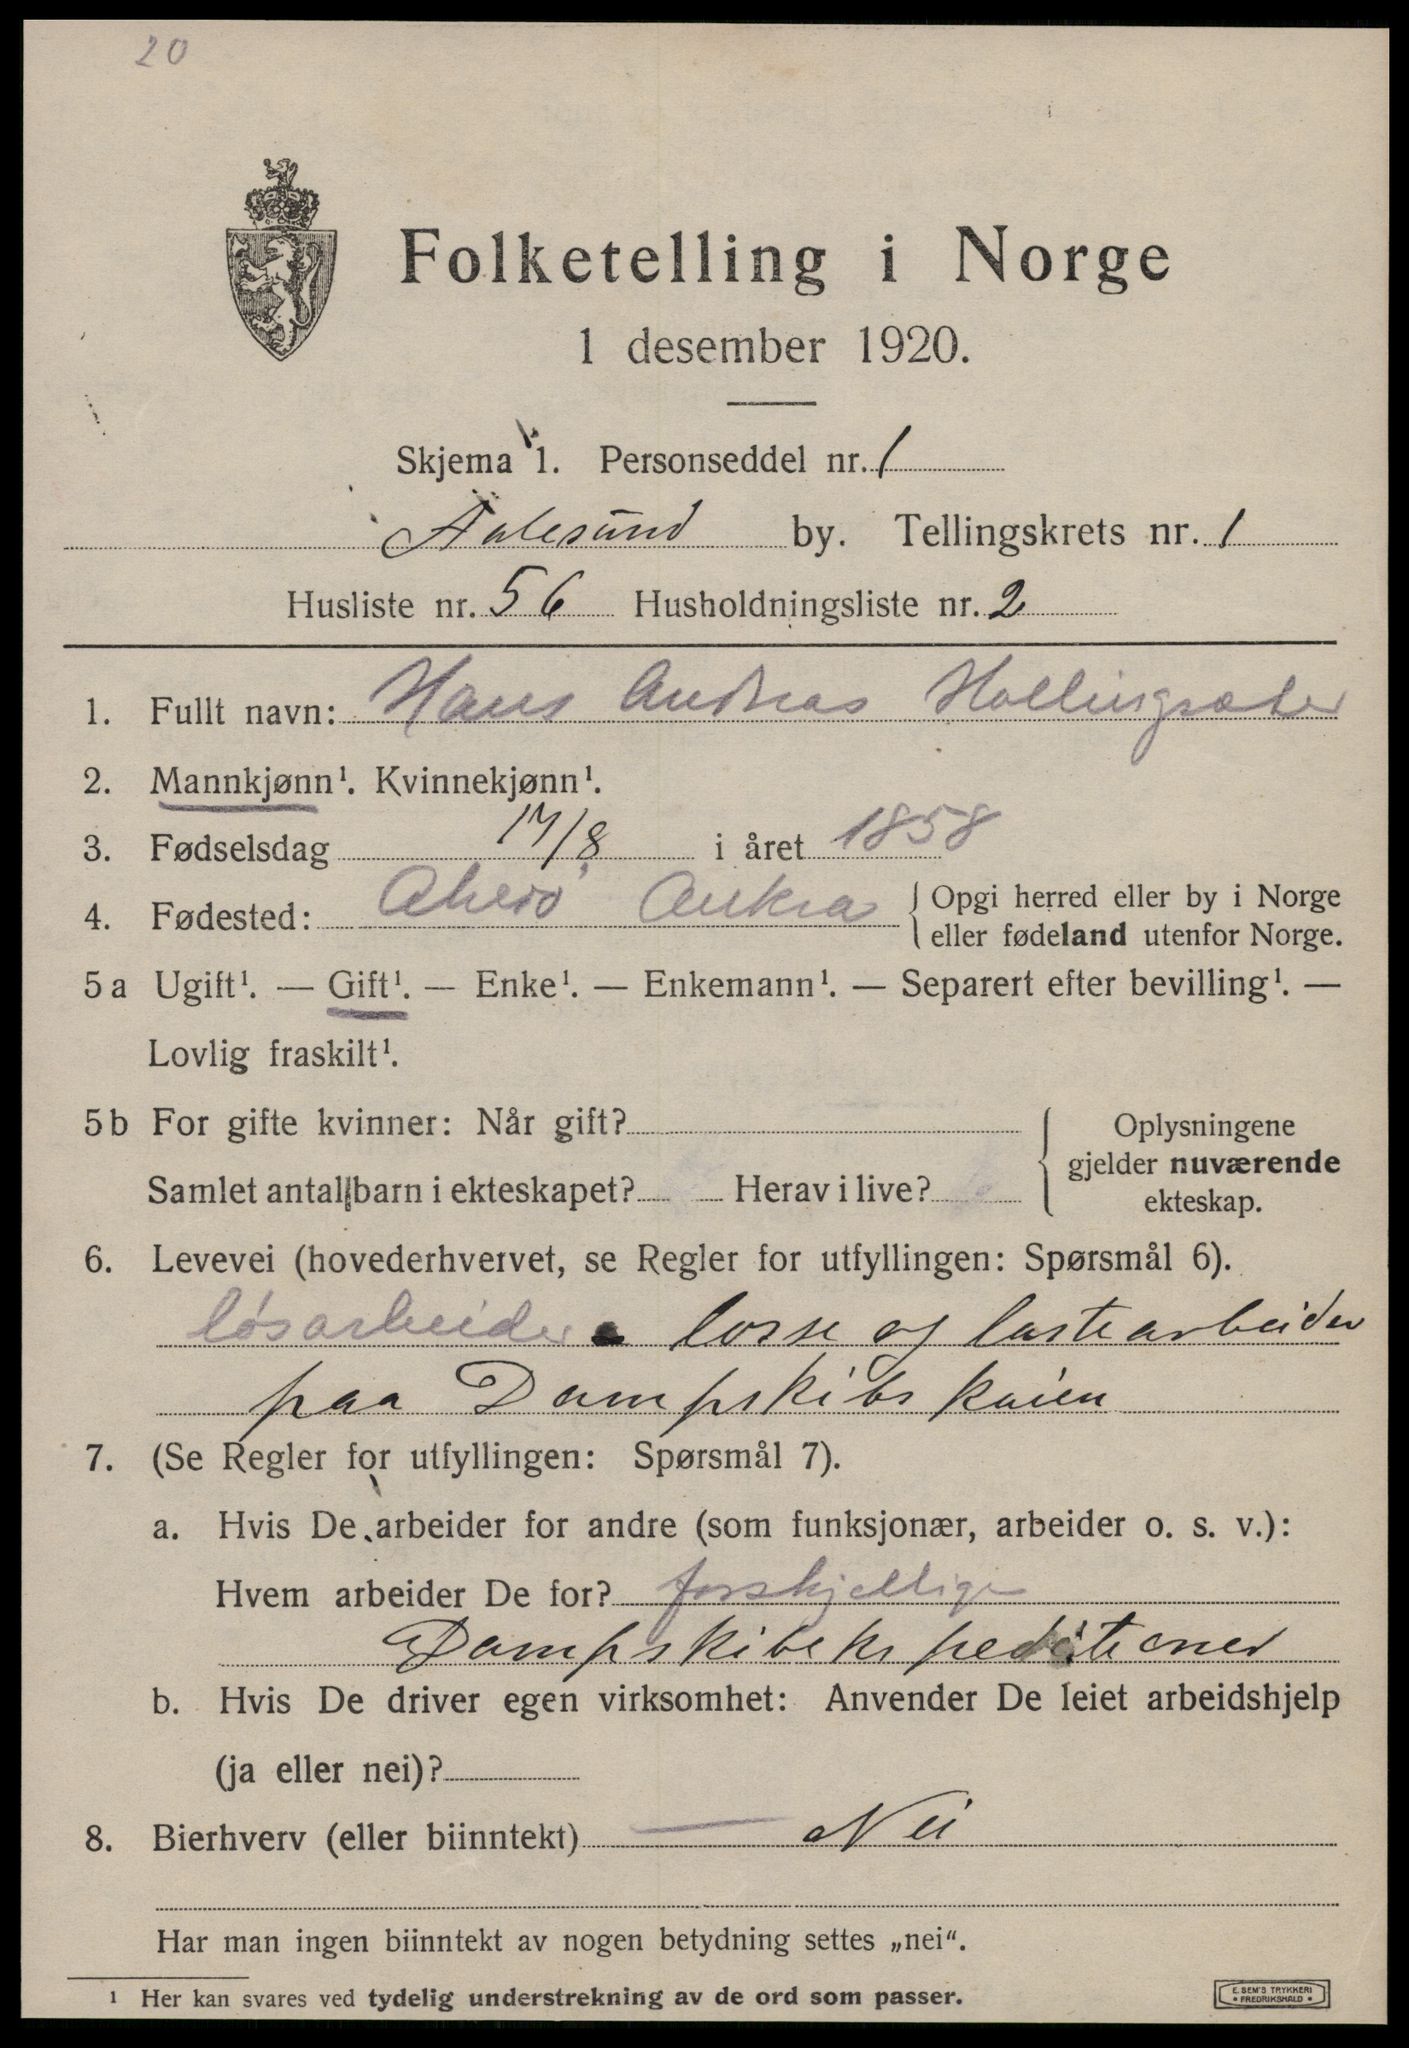 20
Folketelling i Norge
1 desember 1920.
Skjema 1. Personseddel nr. 1
Aalesund by. Tellingskrets nr. 1
Husliste nr. 56 Husholdningsliste nr. 2
1. Fullt navn: Hans Andreas Hollingsæter
2. Mannkjønn¹. Kvinnekjønn¹.
3. Fødselsdag 17/8 i året 1858
4. Fødested: Aukra { Opgi herred eller by i Norge
eller fødeland utenfor Norge.
5 a Ugift¹. — Gift¹. — Enke¹. — Enkemann¹. — Separert efter bevilling¹. —
Lovlig fraskilt¹.
5 b For gifte kvinner: Når gift? { Oplysningene
gjelder nuværende
ekteskap.
Samlet antall barn i ekteskapet? Herav i live?
6. Levevei (hovederhvervet, se Regler for utfyllingen: Spørsmål 6).
løsarbeider losse og lastearbeider
paa Dampskibskaien
7. (Se Regler for utfyllingen: Spørsmål 7).
a. Hvis De arbeider for andre (som funksjonær, arbeider o. s. v.):
Hvem arbeider De for? forskjellige
Dampskibekspeditioner
b. Hvis De driver egen virksomhet: Anvender De leiet arbeidshjelp
(ja eller nei)?
8. Bierhverv (eller biinntekt) — Nei
Har man ingen biinntekt av nogen betydning settes „nei“.
¹ Her kan svares ved tydelig understrekning av de ord som passer.
E. SEM'S TRYKKERI
• FREDRIKSHALD •